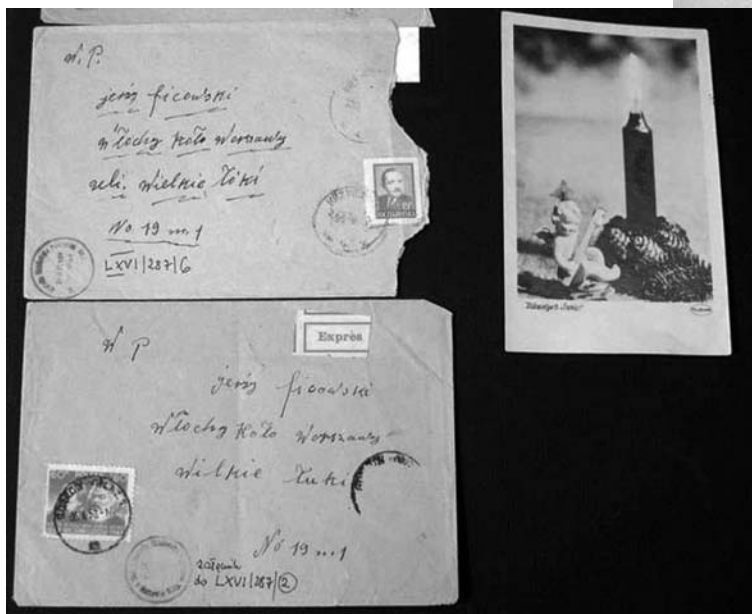 W. P.
jeriy ficowski
Włochy Koło Warszawy
uli. Wielkie Łóki
No 19 m. 1
LXVI/287/6
Exprès
W P
jeriy ficowski
Włochy Koło Warszawy
Wilkie Łuki
No 19 m. 1
załącznik
do LXVI/287/2
Wesołych Świąt